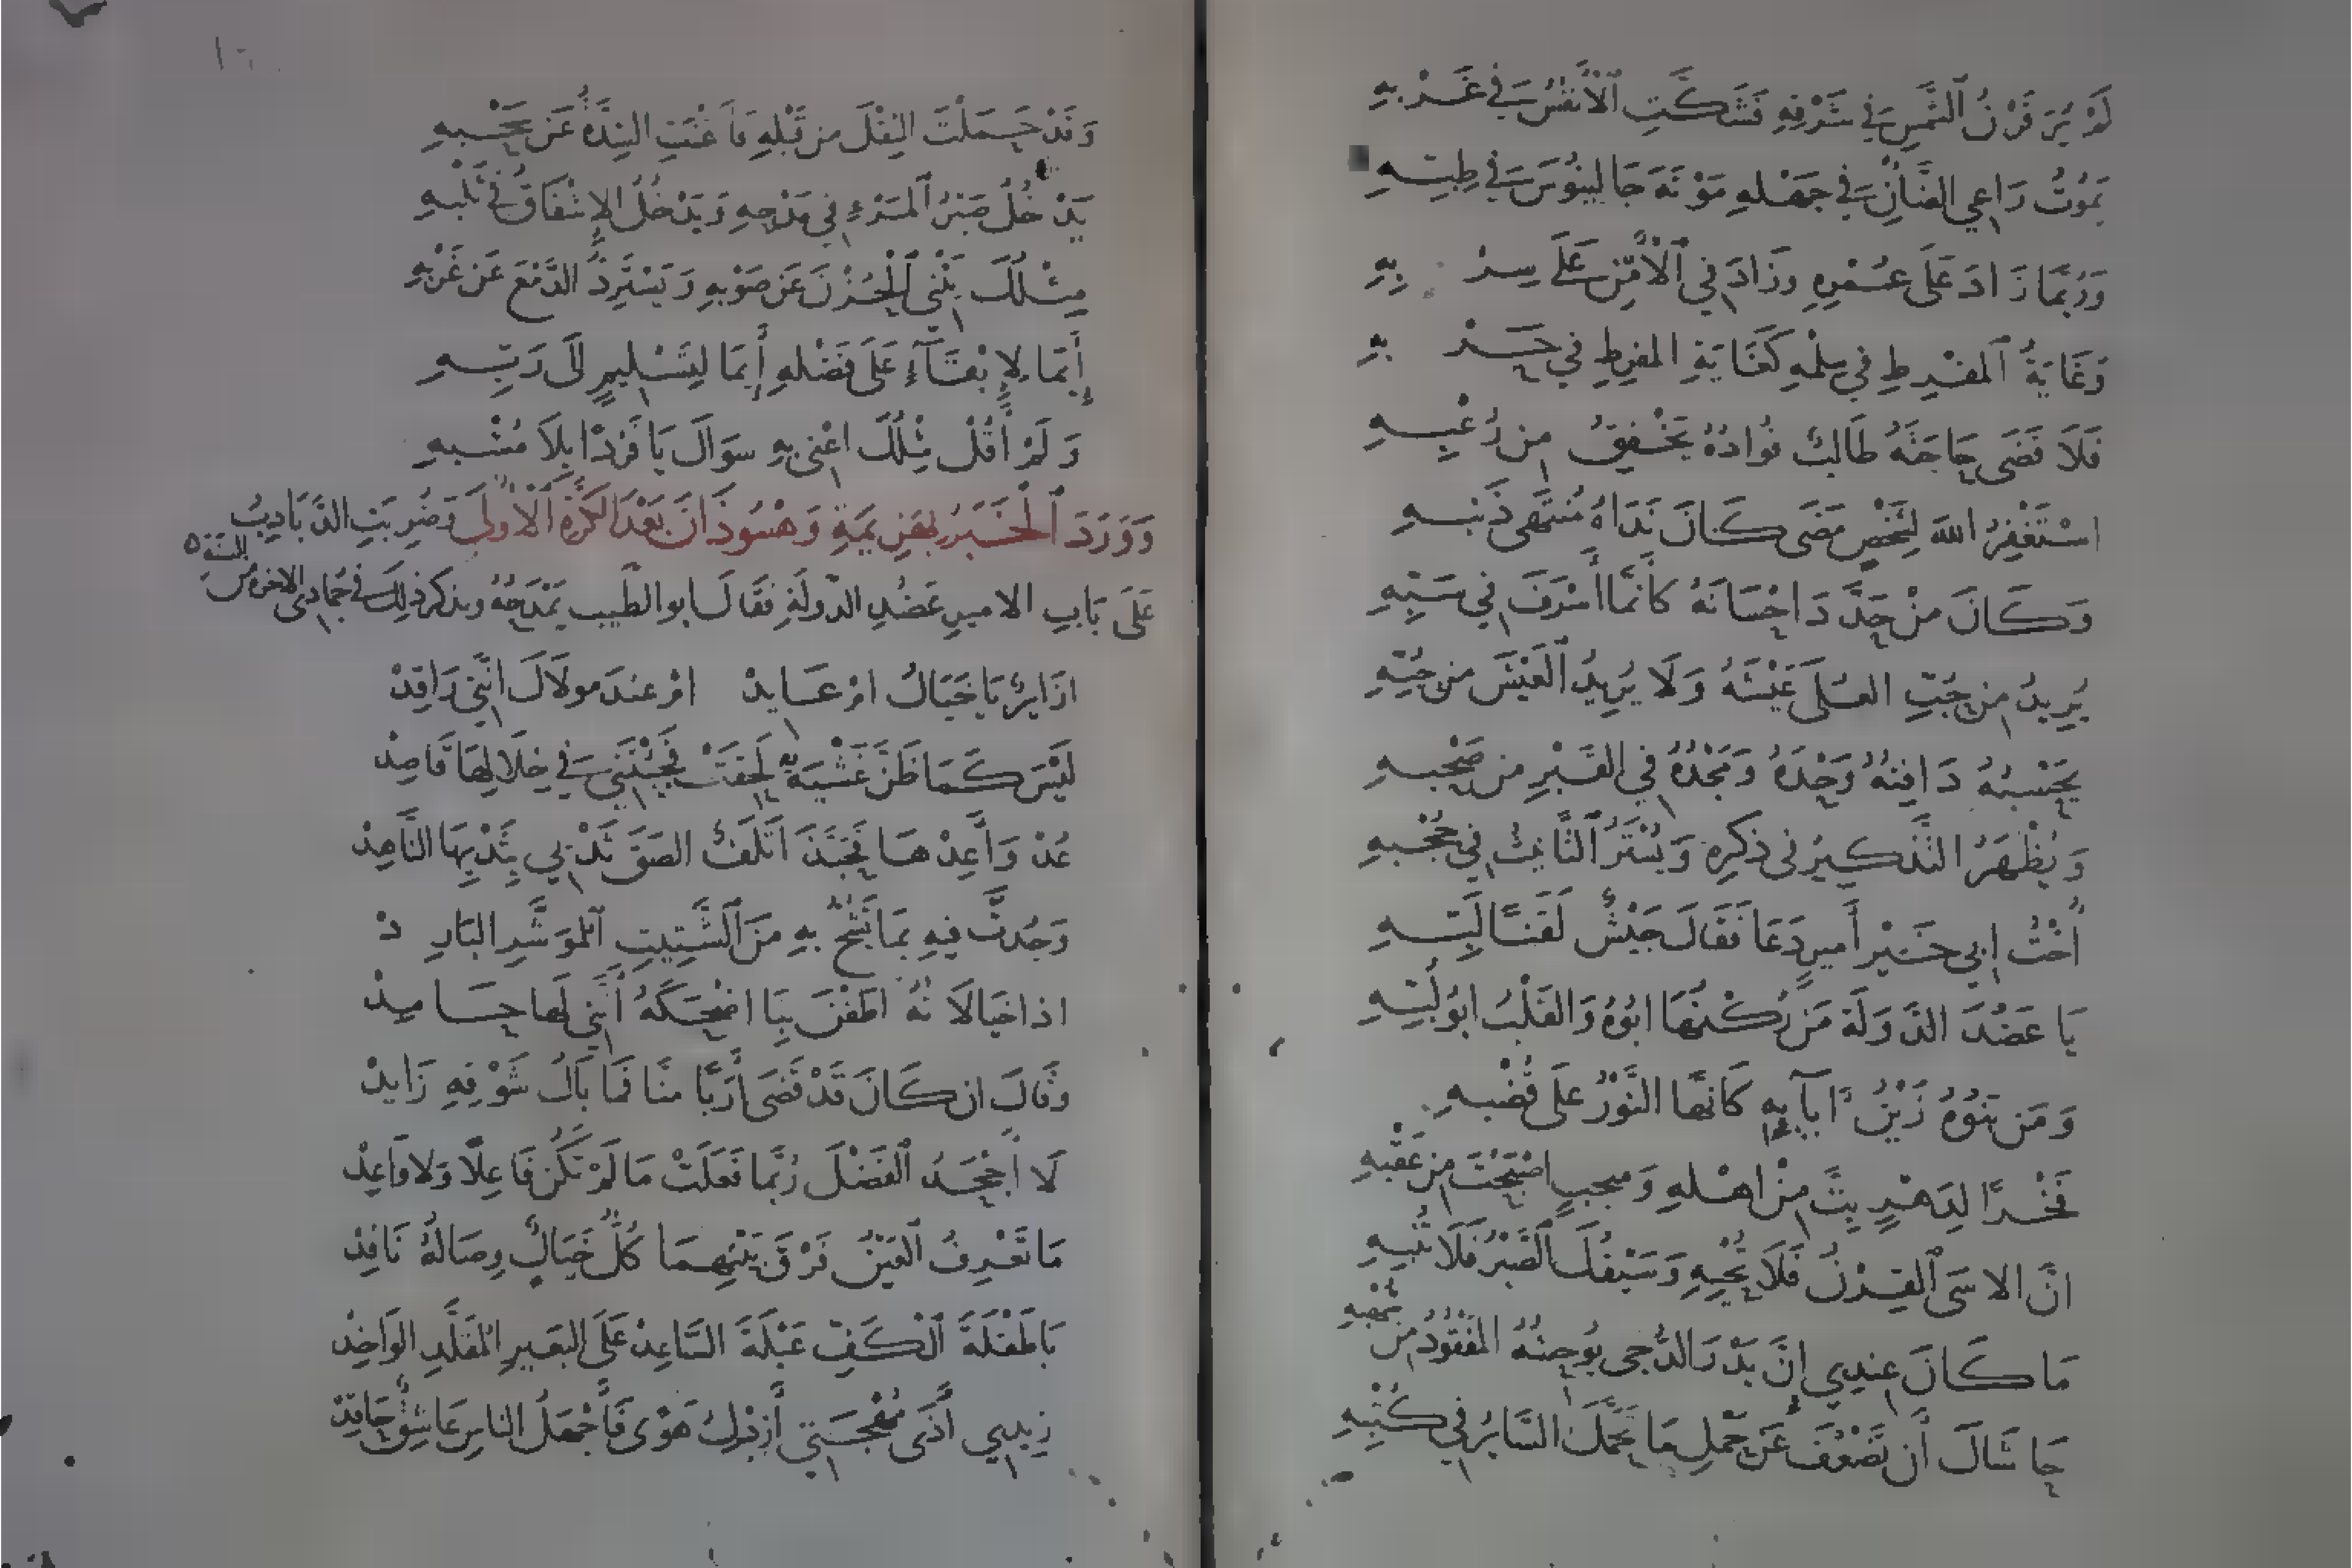 لَمْ يُرَ قَرْنُ ٱلشَّمْسِ فِي شَرْقِهِ فَشَكَّتِ ٱلْأَنْفُسُ فِي غَرْبِهِ
يَمُوتُ رَاعِي الضَّأْنِ فِي جَهْلِهِ مَوْتَةَ جَالِينُوسَ فِي طِبِّهِ
وَرُبَّمَا زَادَ عَلَى عُمْرِهِ وزَادَ فِي ٱلْأَمْنِ عَلَى سِرْبِهِ
وَغَايَةُ ٱلمُفْرِطِ فِي سِلْمِهِ كَغَايَةِ المُفْرِطِ فِي حَرْبِهِ
فَلَا قَضَى حَاجَتَهُ طَالِبٌ فُوَادُهُ يَخْفِقُ مِن رُعْبِهِ
اسْتَغْفِرُ اللهَ لِشَخْصٍ مَضَى كَانَ نَدَاهُ مُنْتَهَى ذَنْبِهِ
وَكَانَ مَنْ حَدَّدَ احْسَانَهُ كَأَنَّمَا أَسْرَفَ فِي سَبِّهِ
يُرِيدُ مِن حُبِّ العُلَى عَيْشَهُ وَلَا يُرِيدُ ٱلْعَيْشَ مِن حُبِّهِ
يَحْسَبُهُ دَافِنُهُ وَحْدَهُ وَمَجْدُهُ فِي القَبْرِ مِن صَحْبِهِ
وَيُظْهَرُ التَّذْكِيرُ فى ذِكْرِهِ وَيُسْتَرُ ٱلتَّانِيثُ فِي حُجْبِهِ
أُخْتُ ابِي خَيْرِ أَمِيرٍ دَعَا فَقَالَ جَيْشٌ لِلقَنَا لَبِّهِ
يَا عَضُدَ الدَّوْلَةِ مَن رُكْنُهَا ابُوهُ وَالقَلْبُ ابُو لُبِّهِ
وَمَن بَنُوهُ زَيْنُ آبَآئِهِ كَانَّهَا النَّوْرُ عَلَى قُضْبِهِ
فَخْرًا لِدَهْرٍ بِتَّ مِنْ اهْلِهِ وَمُنجِبٍ اصْبَحْتَ مِن عَقْبِهِ
انَّ الاسَى ٱلْقِرْنُ فَلَا تُحْيِهِ وَسَيْفُكَ ٱلصَّبْرُ فَلَا تُنْبِهِ
مَا كَانَ عِندِي انَّ بَدْرَ الدُّجى يُوحِشُهُ المَفْقُودُ مِن شُهْبِهِ
حَاشَاكَ أَن تَضْعُفَ عَن حَمْلِ مَا تَحَمَّلَ السَّايرُ فِي كُتْبِهِ
وَقَدْ حَمَلْتَ الثِّقْلَ مِن قَبْلِهِ فَأَغْنَتِ الشِّدَّةُ عَن سَحْبِهِ
يَدْخُلُ صَبْرُ ٱلمَرْءِ فِي مَدْحِهِ وَيَدْخُلُ الإشْفَاقُ فِي ثَلْبِهِ
مِثْلُكَ يَثْنِي ٱلْحُزْنَ عَن صَوْبِهِ وَيَسْتَرِدُّ الدَّمْعَ عَن غَرْبِهِ
إِيمَا لِإِبْقَآءٍ عَلَى فَضْلِهِ إِيمَا لِتَسْلِيمٍ الَى رَبِّهِ
وَلَمْ أَقُلْ مِثْلُكَ اعْنى بِهِ سِوَاكَ يَا فَرْدًا بِلَا مُشْبِهِ
وَوَرَدَ ٱلْخَبَرُ بِهَزِيمَةِ وَهْسُوذَانَ بَعْدَ الكَرَّةِ ٱلْأُولَى وَضُرِبَتِ الدَّبَادِيبُ
عَلَى بَابِ الامير عَضُدِ الدّوْلَةِ فَقَالَ ابو الطَّيب يَمْدَحُهُ ويذكر ذلِكَ فى جُمَادى الاخرة من السنة
ازَايِرٌ يَا خَيَالُ امْ عَايِدْ امْ عِندَ مولَاكَ انَّنِي رَاقِدْ
لَيْسَ كَمَا ظَنَّ غَشْيَةٌ لَحِقَتْ فَجِئْتَنِي فِي خِلَالِهَا قَاصِدْ
عُدْ وَأَعِدْهَا فَحَبَّذَا تَلَفٌ الصَقَ ثَدْيِي بِثَدْيِهَا النَّاهِدْ
وَجُدْتَ فِيهِ بمَا تَشُحُّ بِهِ مَنَ ٱلشَّتِيتِ ٱلمُوَشَّرِ البَارِدْ
اذا خَيَالَاتُهُ اطَفْنَ بِنَا اضْحَكَهُ أَنَّنِي لَهَا حَامِدْ
وقَالَ ان كَانَ قَدْ قَضَى أَرَبًا مِنَّا فَمَا بَالُ شَوْقِهِ زَايِدْ
لَا أَجْحَدُ ٱلفَضْلَ رُبَّمَا فَعَلَتْ مَا لَمْ تَكُن فَاعِلًا وَلَا وَاعِدْ
مَا تَعْرِفُ ٱلعَيْنُ فَرْقَ بَيْنِهِمَا كُلٌّ خَيَالٌ وِصَالُهُ نَافِدْ
يَا طَفْلَةَ ٱلْكَفِّ عَبْلَةَ السَّاعِدْ عَلَى البَعِيرِ المُقَلَّدِ الوَاخِدْ
زِيدِي أَذَى مُهْجَتِي أَزِدْكِ هَوًى فَأَجْهَلُ الناسِ عَاشِقٌ حَاقِدْ